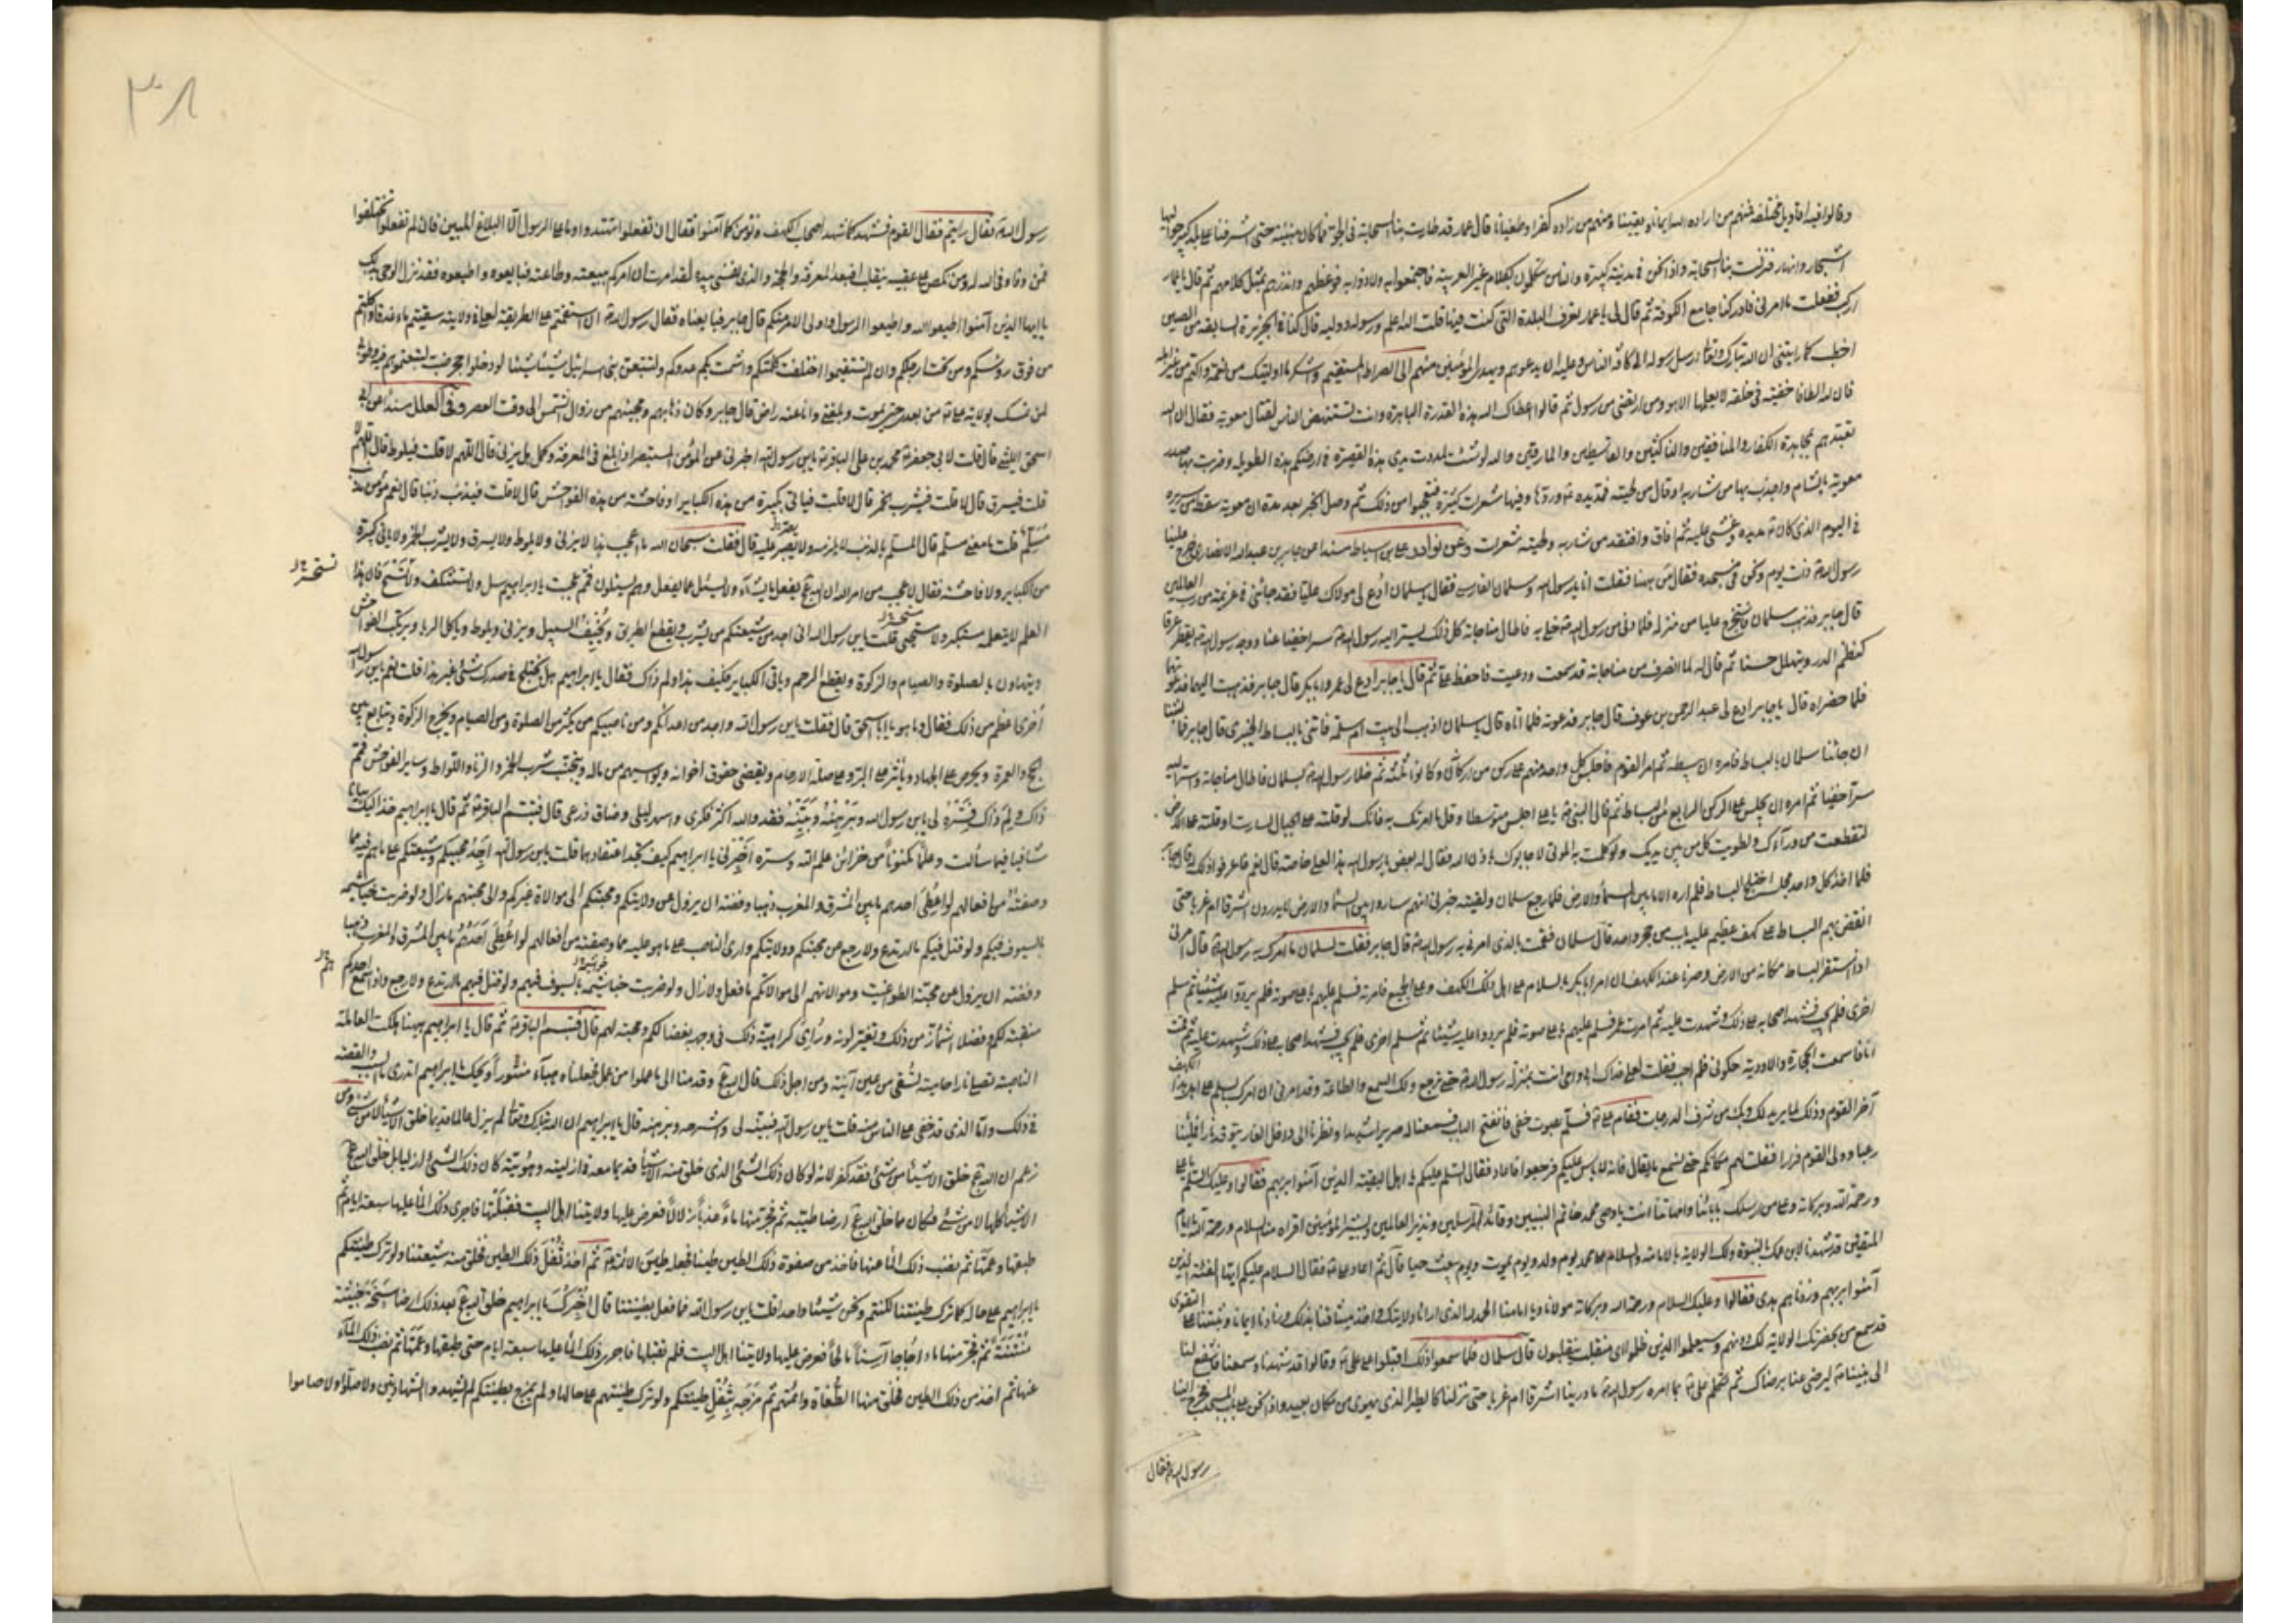 وقالوا فيه اقاويل مختلفة فمنهم من زاده الله ايمانا ويقينا ومنهم من زاده كفرا وطغيانا قال عمار قد طارت بنا السحابة في الجو فما كان هنيئة حتى اشرفنا على بلد كبير حواليها
اشجار وانهار فنزلت بنا السحابة واذا نحن في مدينة كبيرة والناس يتكلمون بكلام غير العربية فاجتمعوا عليه ولاذوا به فوعظهم وانذرهم بمثل كلامهم ثم قال يا عمار
اركب ففعلت ما امرني فادركنا جامع الكوفة ثم قال لي يا عمار تعرف البلدة التي كنت فيها قلت الله اعلم ورسوله ووليه قال كنا في الجزيرة السابعة من الصين
اخطب كما رايتني ان الله تبارك وتعالى ارسل رسوله الى كافة الناس وعليه ان يدعوهم ويهدي المؤمنين منهم الى الصراط المستقيم واشكر ما اوليتك من نعمة واكتم من غير اهله
فان لله الطافا خفية في خلقه لا يعلمها الا هو ومن ارتضى من رسول ثم قالوا اعطاك الله هذه القدرة الباهرة وانت تستنهض الناس لقتال معوية فقال ان الله
تعبدهم بمجاهدة الكفار والمنافقين والناكثين والقاسطين والمارقين والله لو شئت لمددت يدي هذه القصيرة في ارضكم هذه الطويلة وضربت بها صدر
معوية بالشام واجذب بها من شاربه او قال من لحيته فمد يده وردها وفيها شعرات كثيرة فتعجبوا من ذلك ثم وصل الخبر بعد مدة ان معوية سقط من سريره
في اليوم الذي كان مد يده وغشي عليه ثم افاق وافتقد من شاربه ولحيته شعرات وعن نوادر علي بن اسباط مسندا عن جابر بن عبدالله الانصاري خرج علينا
رسول الله ذات يوم ونحن في مسجده فقال من ههنا فقلت انا يا رسول الله وسلمان الفارسي فقال يا سلمان ادع لي مولاك عليا فقد جائتني فيه عزيمة من رب العالمين
قال جابر فذهب سلمان فاستخرج عليا من منزله فلما دنى من رسول الله خلى به فاطال مناجاته كل ذلك يستر اليه رسول الله سرا خفيا عنا ووجه رسول الله يقطر عرقا
كنظم الدر ويتهلل حسنا ثم قال له لما انصرف من مناجاته قد سمعت ووعيت فاحفظ يا علي ثم قال يا جابر ادع لي عمر وابا بكر قال جابر فذهبت اليهما فدعوتهما
فلما حضراه قال يا جابر ادع لي عبد الرحمن بن عوف قال جابر فدعوته فلما اتاه قال يا سلمان اذهب الى بيت ام سلمة فاتني بالبساط الخيبري قال جابر فما لبثنا
ان جائنا سلمان بالبساط فامره ان يبسطه ثم امر القوم فاجلس كل واحد منهم على ركن من اركانه وكانوا ثلثة ثم خلا رسول الله بسلمان فاطال مناجاته واسر اليه
سرا خفيا ثم امره ان يجلس على الركن الرابع من البساط ثم قال النبي يا علي اجلس متوسطا وقل ما امرتك به فانك لو قلته على الجبال لسارت او قلته على الارض
لتقطعت من ورآءك ولطويت كل من بين يديك ولو كلمت به الموتى لاجابوك باذن الله فقال له بعض يا رسول الله هذا لعلي خاصة قال نعم فاعرفوا ذلك
فلما اخذ كل واحد مجلسه اختلج البساط فلم اره الا ما بين السماء والارض فلما رجع سلمان ولقيته خبرني انهم ساروا بين السماء والارض لا يدرون اشرقا ام غربا حتى
انقض بهم البساط على كهف عظيم عليه باب من حجر واحد قال سلمان فقمت بالذي امرني به رسول الله قال جابر فقلت لسلمان ما امرك به رسول الله قال امرني
اذا استقر البساط مكانه من الارض وصرنا عند الكهف ان امر ابا بكر بالسلام على اهل ذلك الكهف وعلى الجميع فامرته فسلم عليهم باعلى صوته فلم يردوا عليه شيئا ثم سلم
اخرى فلم يجب فشهد اصحابه على ذلك وشهدت عليه ثم امرت عمر فسلم عليهم باعلى صوته فلم يردوا عليه شيئا ثم سلم اخرى فلم يجب فشهد اصحابه على ذلك وشهدت عليه ثم قمت
انا فاسمعت الحجارة والاودية صوتي فلم اجب فقلت لعلي فداك ابي وامي انت بمنزلة رسول الله حتى نرجع ولك السمع والطاعة وقد امرني ان امرك بالسلام على اهل هذا الكهف
آخر القوم وذلك لما يريد لك وبك من شرف الدرجات فقام علي فسلم بصوت خفي فانفتح الباب فسمعنا له صريرا شديدا ونظرنا الى داخل الغار يتوقد نارا فملئنا
رعبا وولى القوم فرارا فقلت لهم مكانكم حتى نسمع ما يقال فانه لا باس عليكم فرجعوا فاعاد فقال السلم عليكم يا اهل البقية الذين آمنوا بربهم فقالوا وعليك السلم يا علي
ورحمة الله وبركاته وعلى من ارسلك بابائنا وامهاتنا انت يا وصي محمد خاتم النبيين وقائد المرسلين ونذير العالمين وبشير المؤمنين اقراه منا السلام ورحمة الله يا امام
المتقين قد شهدنا لابن عمك بالنبوة ولك الولاية بالامامة والسلام على محمد يوم ولد ويوم يموت ويوم يبعث حيا قال ثم اعاد علي فقال السلام عليكم ايتها الفئة الذين
آمنوا بربهم وزدناهم هدى فقالوا وعليك السلام ورحمة الله وبركاته مولانا ويا امامنا الحمد لله الذي ارانا ولايتك واخذ ميثاقنا بذلك وزادنا ايمانا وثبتنا على التقوى
قد سمع من بحضرتك الولاية لك دونهم وسيعلموا الذين ظلموا اي منقلب ينقلبون قال سلمان فلما سمعوا ذلك اقبلوا على علي وقالوا قد شهدنا وسمعنا فاشفع لنا
الى نبينا ليرضى عنا برضاك ثم تكلم علي بما امره رسول الله ما درينا اشرقا ام غربا حتى نزلنا كالطير الذي يهوي من مكان بعيد واذا نحن على باب المسجد فخرج الينا
رسول الله فقال
٣٨
رسول الله فقال رايتم فقال القوم نشهد كما شهد اصحاب الكهف ونؤمن كما آمنوا فقال ان تفعلوا تهتدوا وما على الرسول الا البلاغ المبين فان لم تفعلوا تختلفوا
فمن وفى وفى الله له ومن نكص على عقبيه ينقلب افبعد المعرفة والحجة والذي نفسي بيده لقد امرت ان امركم ببيعته وطاعته فبايعوه واطيعوه فقد نزل الوحي بذلك
يا ايها الذين آمنوا اطيعوا الله واطيعوا الرسول واولي الامر منكم قال جابر فبايعناه فقال رسول الله ان استقمتم على الطريقة لعلي في ولايته سقيتم ماء غدقا واكلتم
من فوق رؤسكم ومن تحت ارجلكم وان لم تستقيموا اختلفت كلمتكم واشمت بكم عدوكم ولتتبعن بني اسرائيل شيئا شيئا لو دخلوا جحر ضب لتبعتموهم فيه وطوبى
لمن تمسك بولاية علي من بعدي حتى يموت ويلقني وانا عنه راض قال جابر وكان ذهابهم ومجيئهم من زوال الشمس الى وقت العصر وفي العلل مسندا عن ابي
اسحق الليثي قال قلت لابي جعفر محمد بن علي الباقر يابن رسول الله اخبرني عن المؤمن المستبصر اذا بلغ في المعرفة وكمل هل يزني قال اللهم لا قلت فيلوط قال اللهم لا
قلت فيسرق قال لا قلت فيشرب الخمر قال لا قلت فياتي بكبيرة من هذه الكباير او فاحشة من هذه الفواحش قال لا قلت فيذنب ذنبا قال نعم هو مؤمن مذنب
مسلم قلت ما معنى مسلم قال المسلم بالذنب لا يلزمه ولا يصير عليه قال فقلت سبحان الله ما اعجب هذا لا يزني ولا يلوط ولا يسرق ولا يشرب الخمر ولا ياتي كبيرة
يصر
من الكباير ولا فاحشة فقال لا عجب من امر الله ان الله يفعل ما يشآء ولا يسئل عما يفعل وهم يسئلون فمم عجبت يا ابراهيم سل ولا تستنكف ولا تستح فان هذا
العلم لا يتعلمه مستكبر ولا مستحيي قلت يابن رسول الله اني اجد من شيعتكم من يشرب ويقطع الطريق ويخيف السبيل ويزني ويلوط وياكل الربا ويرتكب الفواحش
ويتهاون بالصلوة والصيام والزكوة ويقطع الرحم وياتي الكباير فكيف هذا ولم ذاك فقال يا ابراهيم هل يختلج في صدرك شيء غير هذا قلت نعم يابن رسول الله
اخرى اعظم من ذلك فقال وما هو يا ابا اسحق قال فقلت يابن رسول الله واجد من اعدائكم ومن ناصبيكم من يكثر من الصلوة ومن الصيام ويخرج الزكوة ويتابع بين
الحج والعمرة ويحرص على الجهاد ويأثر على البر وعلى صلة الارحام ويقضي حقوق اخوانه ويواسيهم من ماله ويتجنب شرب الخمر والزنا واللواط وساير الفواحش فمم
ذاك ولم ذاك فسره لي يابن رسول الله وبرهنه وبينه فقد والله اكثر فكري واسهر ليلي وضاق ذرعي قال فتبسم الباقر ثم قال يا ابراهيم خذ اليك بيانا
شافيا فيما سألت وعلما مكنونا من خزائن علم الله وسره اخبرني يا ابراهيم كيف تجد اعتقادهما قلت يابن رسول الله اجد محبيكم وشيعتكم على ما هم فيه مما
وصفته من افعالهم لو اعطي احدهم ما بين المشرق والمغرب ذهبا وفضة ان يزول عن ولايتكم ومحبتكم الى موالاة غيركم والى محبتهم ما زال ولو ضربت خياشيمه
بالسيوف فيكم ولو قتل فيكم ما ارتدع ولا رجع عن محبتكم وولايتكم وارى الناصب على ما هو عليه مما وصفته من افعالهم لو اعطي احدهم ما بين المشرق والمغرب ذهبا
وفضة ان يزول عن محبة الطواغيت وموالاتهم الى موالاتكم ما فعل ولا زال ولو ضربت خياشيمه بالسيوف فيهم ولو قتل فيهم ما ارتدع ولا رجع واذا سمع احدكم
منقبة لكم وفضلا اشمأز من ذلك وتغير لونه ورأى كراهية ذلك في وجهه بغضا لكم ومحبة لهم قال فتبسم الباقر ثم قال يا ابراهيم ههنا هلكت العاملة
الناصبة تصلى نارا حامية تسقى من عين آنية ومن اجل ذلك قال الله وقدمنا الى ما عملوا من عمل فجعلناه هبآء منثورا ويحك يا ابراهيم اتدري ما السبب والقصة
في ذلك وما الذي قد خفي على الناس منه قلت يابن رسول الله فبينه لي واشرحه وبرهنه قال يا ابراهيم ان الله تبارك وتعالى لم يزل عالما قديما خلق الاشياء لا من شيء ومن
زعم ان الله خلق الاشياء من شيء فقد كفر لانه لو كان ذلك الشيء الذي خلق منه الاشياء قديما معه في ازليته وهويته كان ذلك الشيء ازليا بل خلق الله
الاشياء كلها لا من شيء فكان مما خلق الله ارضا طيبة ثم فجر منها ماء عذبا زلالا فعرض عليها ولايتنا اهل البيت فقبلتها فاجرى ذلك الماء عليها سبعة ايام ثم
طبقها وعمها ثم نضب ذلك الماء عنها فاخذ من صفوة ذلك الطين طينا فجعله طين الائمة ثم اخذ ثفل ذلك الطين فخلق منه شيعتنا ولو ترك طينتكم
يا ابراهيم على حاله كما ترك طينتنا لكنتم ونحن شيئا واحدا قلت يابن رسول الله فما فعل بطينتنا قال اخبرك يا ابراهيم خلق الله بعد ذلك ارضا سبخة خبيثة
منتنة ثم فجر منها ماء اجاجا آسنا مالحا فعرض عليها ولايتنا اهل البيت فلم تقبلها فاجرى ذلك الماء عليها سبعة ايام حتى طبقها وعمها ثم نضب ذلك المآء
عنها ثم اخذ من ذلك الطين فخلق منه الطغاة وائمتهم ثم مزجه بثفل طينتكم ولو ترك طينتهم على حالها ولم يمزج بطينتكم لم يشهدوا الشهادتين ولا صلوا ولا صاموا